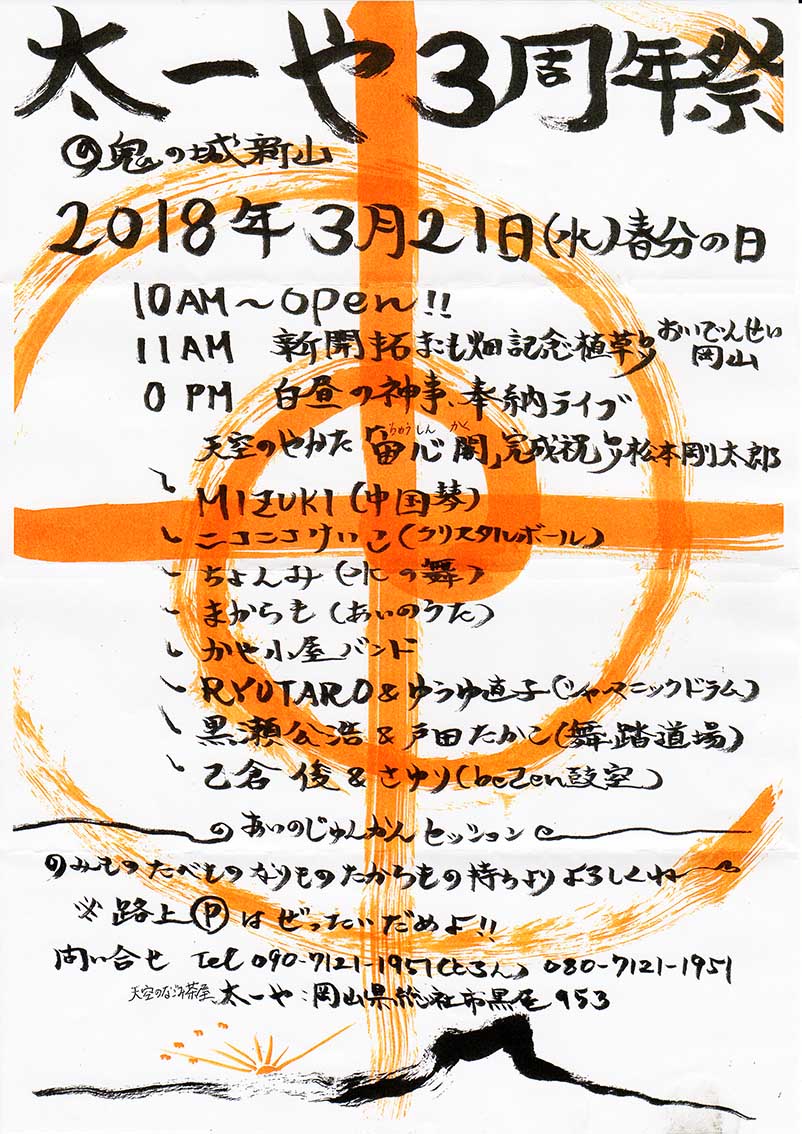 太一や3周年祭
の鬼の城新山
2018年 3月21日(水)春分の日
10AM〜open!!
11AM 新開拓まも畑記念植草 おいでんせい岡山
0PM 白昼の神事、奉納ライブ
天空のやかた「宙心閣」完成祝 松本剛太郎
ちゅうしんかく
MIZUKI(中国琴)
ニコニコけいこ(クリスタルボール)
ちょんみ(水の舞)
まからも(あいのうた)
かや小屋バンド
RYUTARO&ゆうゆ直子(シャーマニックドラム)
黒瀬公浩&戸田たかこ(舞踏道場)
乙倉俊&さゆり(beZen鼓室)
あいのじゅんかんセッション
のみものたべものなりものたからもの持ちよりよろしくね
※路上Ⓟはぜったいだめよ!!
問い合せ Tel 090-7121-1951(とろん) 080-7121-1951
太一や:岡山県総社市黒尾953